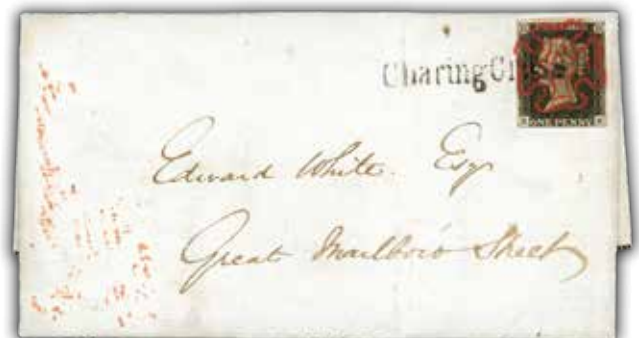 Charing Cross
ONE PENNY
Edward White. Esqr
Great Marlboro' Street